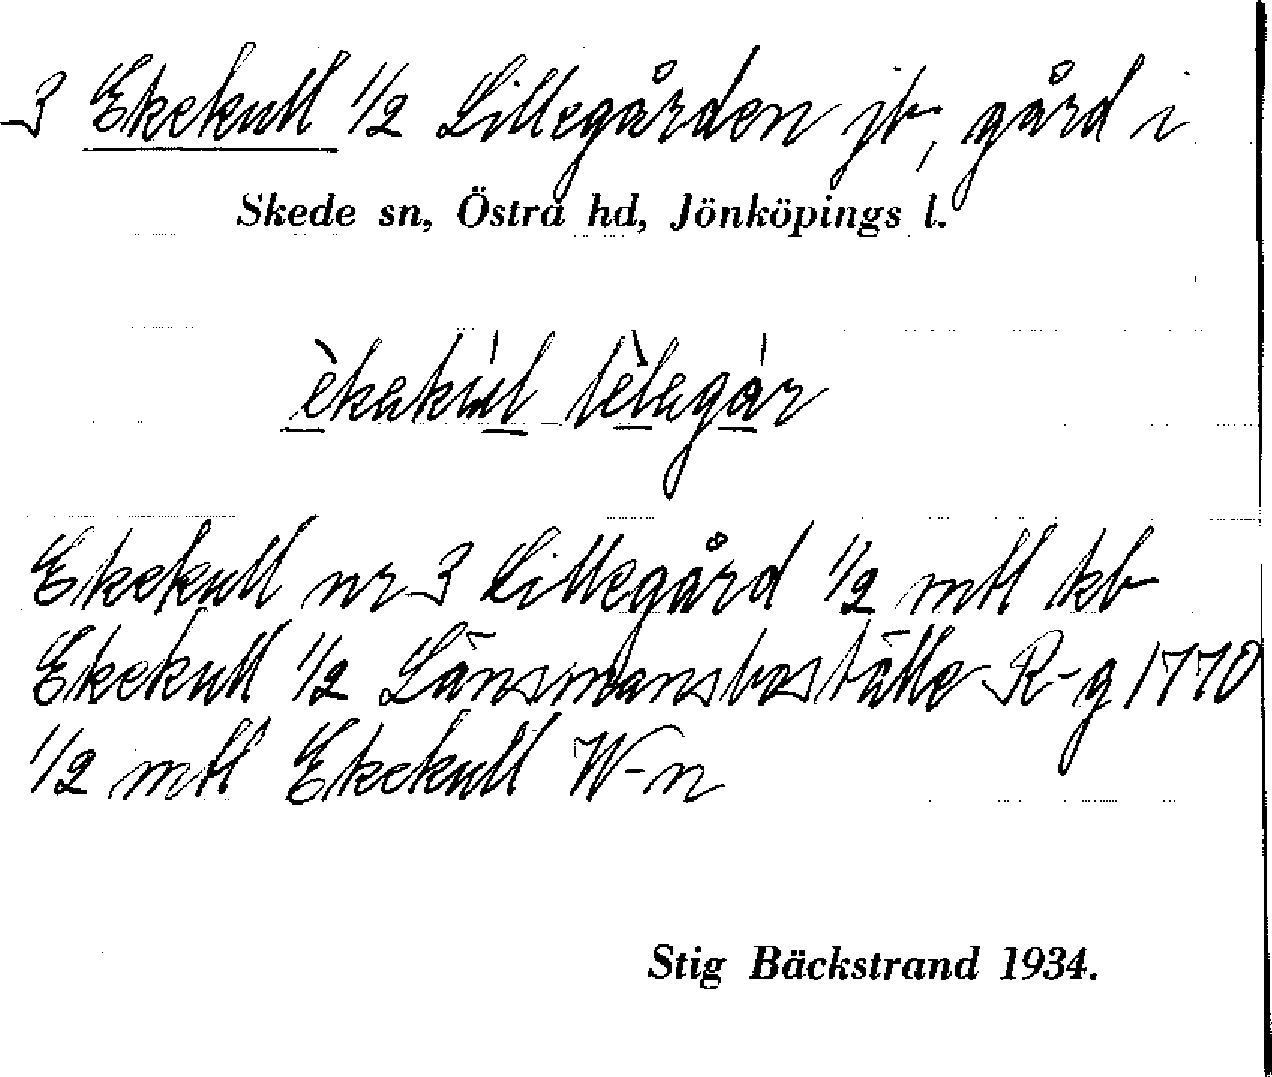 3 Ekekull 1/2 Lillegården jb, gård i
Skede sn, Östra hd, Jönköpings l.
èkakúl lèlagár
Ekekull nr 3 Lillegård 1/2 mtl kb
Ekekull 1/2 Länsmansboställe R-g 1770
1/2 mtl Ekekull W-n
Stig Bäckstrand 1934.